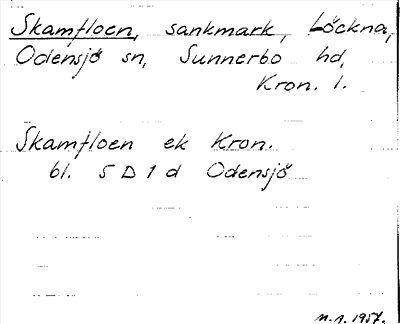 Skamfloen, sankmark, Löckna,
Odensjö sn, Sunnerbo hd,
Kron. l.
Skamfloen ek Kron.
bl. 5 D 1 d Odensjö
n. 1. 1957.